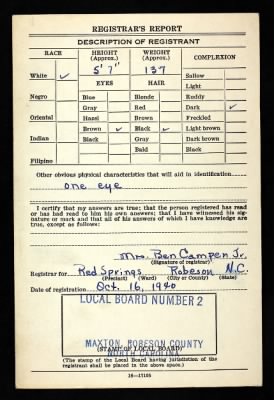 REGISTRAR'S REPORT
DESCRIPTION OF REGISTRANT
RACE HEIGHT (Approx.) WEIGHT (Approx.) COMPLEXION
White ✓ 5' 7" 137 Sallow
EYES HAIR Light
Negro Blue Blonde Ruddy
Gray Red Dark ✓
Oriental Hazel Brown Freckled
Brown ✓ Black ✓ Light brown
Indian Black Gray Dark brown
Bald Black
Filipino
Other obvious physical characteristics that will aid in identification
one eye
I certify that my answers are true; that the person registered has read
or has had read to him his own answers; that I have witnessed his sig-
nature or mark and that all of his answers of which I have knowledge are
true, except as follows:
Mrs. Ben Camper Jr.
(Signature of registrar)
Registrar for Red Springs Robeson N.C.
(Precinct) (Ward) (City or County) (State)
Date of registration Oct. 16, 1940
LOCAL BOARD NUMBER 2
MAXTON, ROBESON COUNTY
(STAMP OF LOCAL BOARD)
NORTH CAROLINA
(The stamp of the Local Board having jurisdiction of the
registrant shall be placed in the above space.)
16—17105